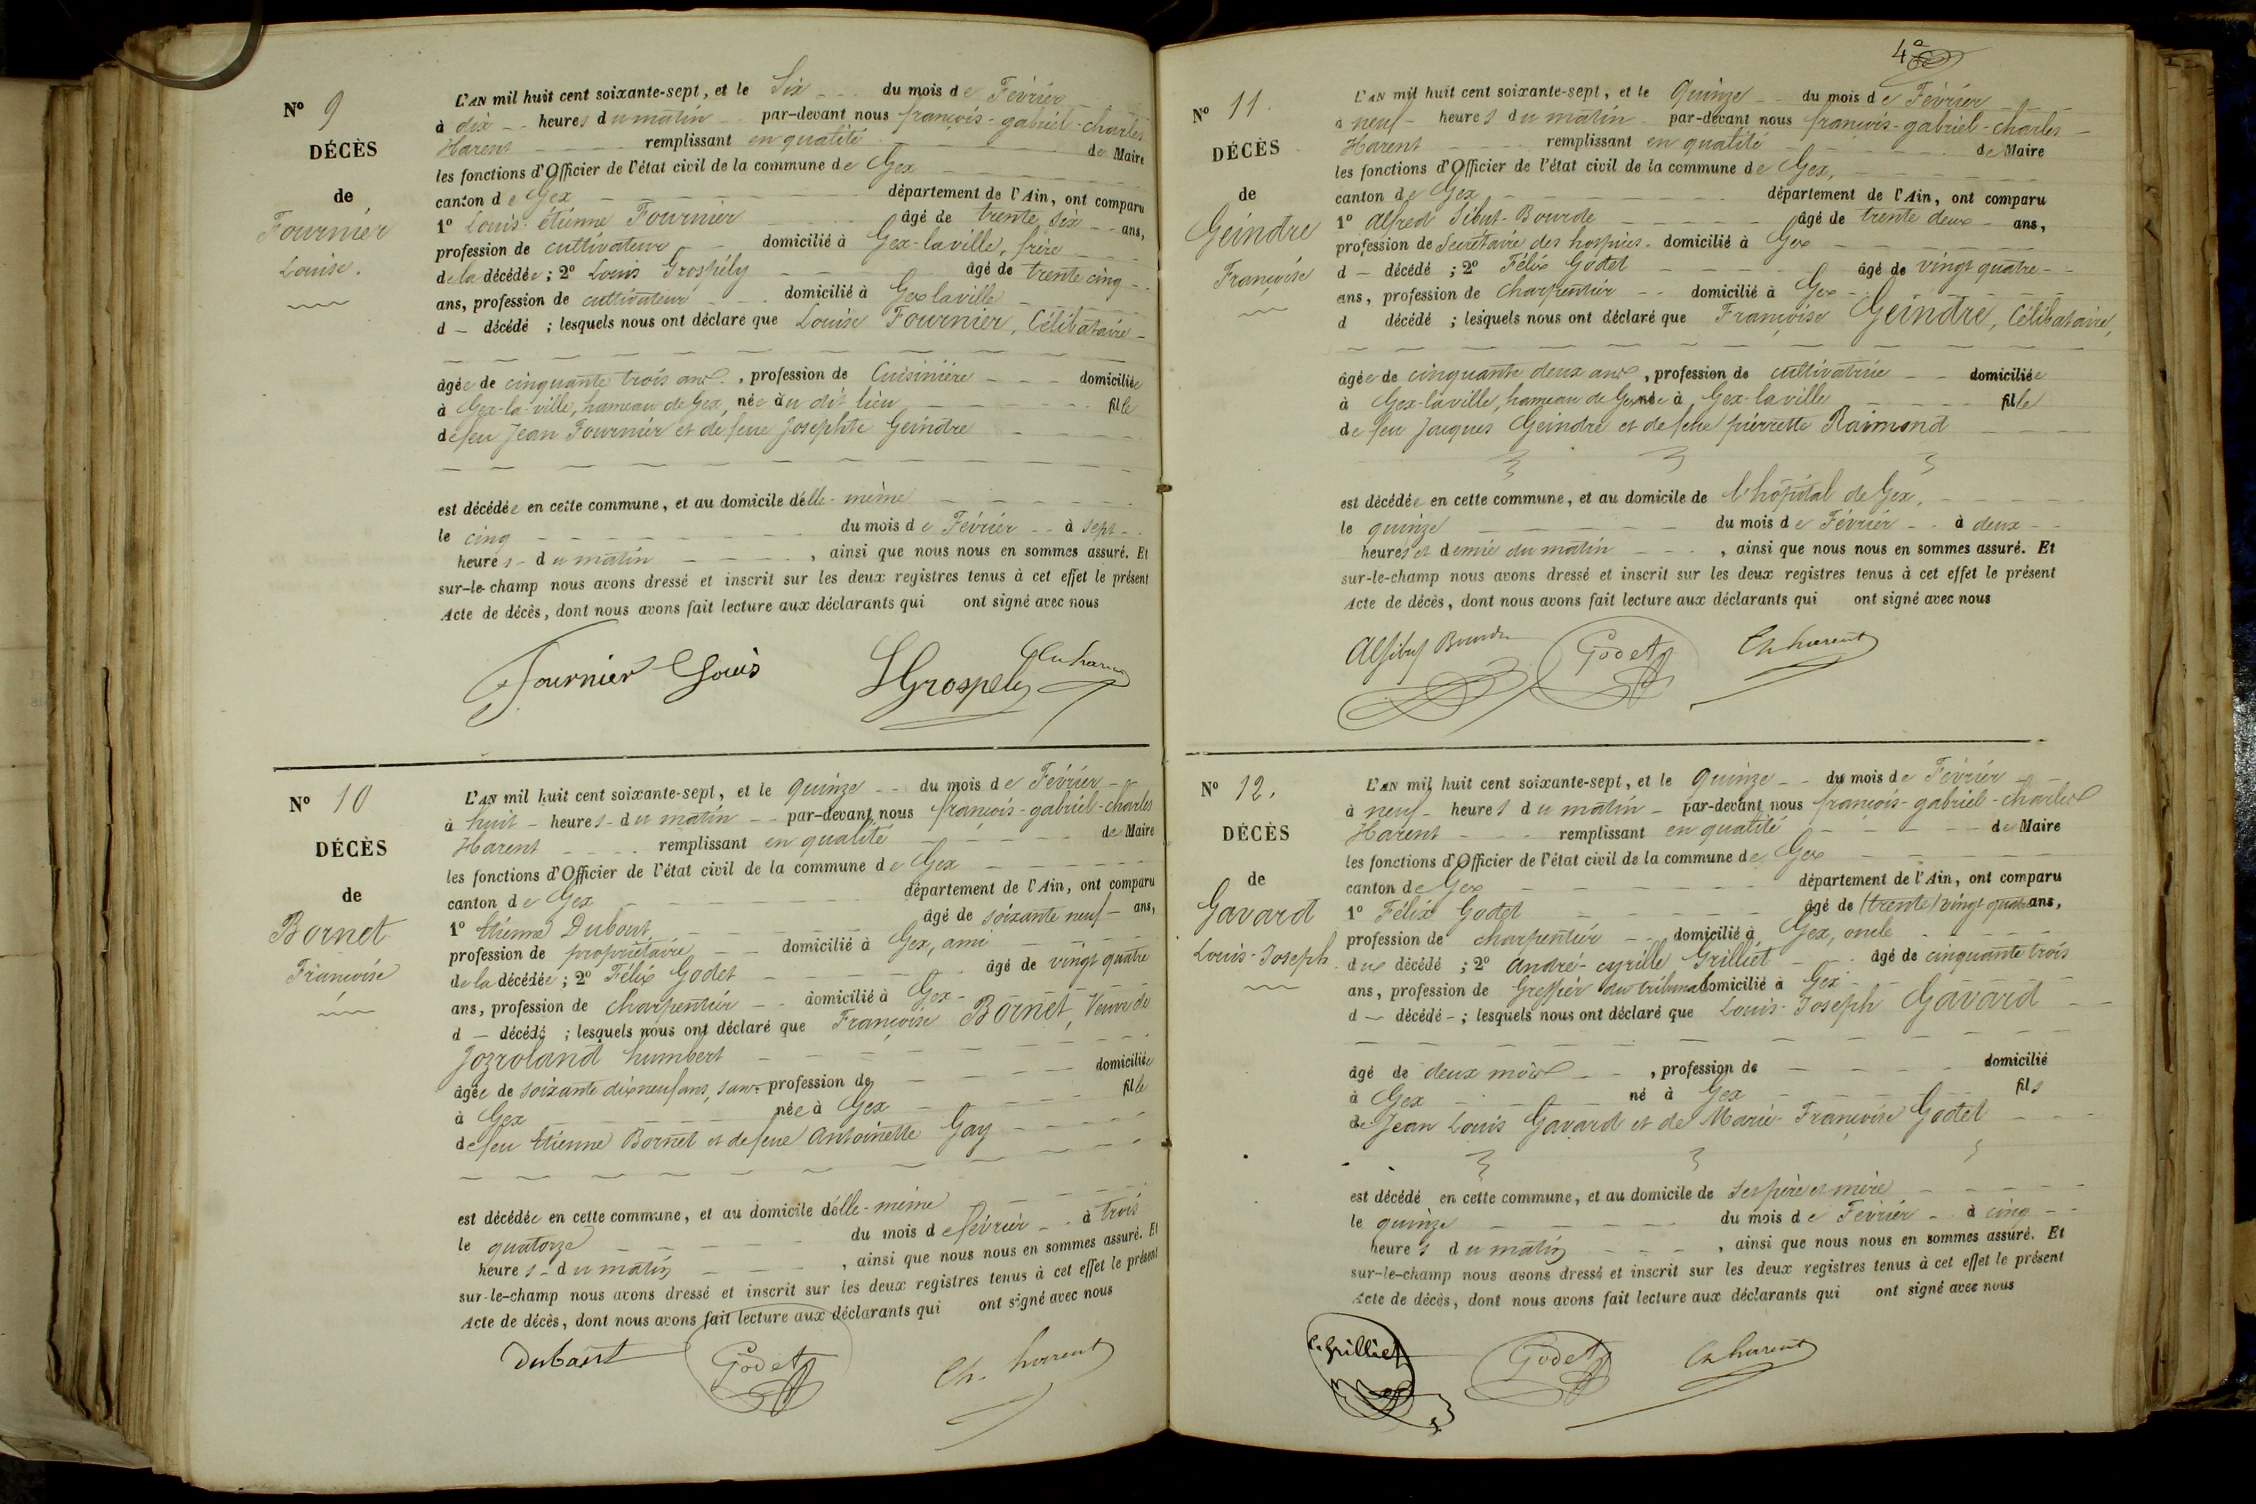 N° 9
DÉCÈS
de
Fournier
Louise.
L'AN mil huit cent soixante-sept, et le Six du mois de Février
à dix heures du matin par-devant nous françois-gabriel-charles
Harent remplissant en qualité de Maire
les fonctions d'Officier de l'état civil de la commune de Gex
canton de Gex département de l'Ain, ont comparu
1° Louis-Étienne Fournier âgé de trente six ans,
profession de cultivateur domicilié à Gex-laville, frère
de la décédée ; 2° Louis Grospély âgé de trente cinq
ans, profession de cultivateur domicilié à Gex laville
d décédé ; lesquels nous ont déclaré que Louise Fournier, Célibataire
âgée de cinquante trois ans, profession de Cuisinière domiciliée
à Gex-la-ville, hameau de Gex, née au dit lieu fille
de feu Jean Fournier et de feue Josephte Geindre
est décédée en cette commune, et au domicile d'elle-même
le cinq du mois de Février à sept
heures du matin, ainsi que nous nous en sommes assuré. Et
sur-le-champ nous avons dressé et inscrit sur les deux registres tenus à cet effet le présent
Acte de décès, dont nous avons fait lecture aux déclarants qui ont signé avec nous
Fournier Louis LGrospely Ch harent
N° 10
DÉCÈS
de
Bornet
Françoise
L'AN mil huit cent soixante-sept, et le quinze du mois de Février
à huit heures du matin par-devant nous françois-gabriel-charles
Harent remplissant en qualité de Maire
les fonctions d'Officier de l'état civil de la commune de Gex
canton de Gex département de l'Ain, ont comparu
1° Etienne Dubout âgé de soixante neuf ans,
profession de propriétaire domicilié à Gex, ami
de la décédée ; 2° Félix Godet âgé de vingt quatre
ans, profession de charpentier domicilié à Gex
d décédé ; lesquels nous ont déclaré que Françoise Bornet, Veuve de
Jozroland humbert
âgée de soixante dix neuf ans, sans profession de domiciliée
à Gex née à Gex fille
de feu Etienne Bornet et de feue Antoinette Gay
est décédée en cette commune, et au domicile d'elle-même
le quatorze du mois de février à trois
heures du matin, ainsi que nous nous en sommes assuré. Et
sur-le-champ nous avons dressé et inscrit sur les deux registres tenus à cet effet le présent
Acte de décès, dont nous avons fait lecture aux déclarants qui ont signé avec nous
Dubout Godet Ch. harent
4e
N° 11.
DÉCÈS
de
Geindre
Françoise
L'AN mil huit cent soixante-sept, et le Quinze du mois de Février
à neuf heures du matin par-devant nous francois-gabriel-charles
Harent remplissant en qualité de Maire
les fonctions d'Officier de l'état civil de la commune de Gex,
canton de Gex département de l'Ain, ont comparu
1° Alfred Sibut-Bourde âgé de trente deux ans,
profession de Secrétaire des hospices domicilié à Gex
d décédé ; 2° Félix Godet âgé de vingt quatre
ans, profession de charpentier domicilié à Gex
d décédé ; lesquels nous ont déclaré que Françoise Geindre, Célibataire,
âgée de cinquante deux ans, profession de cultivatrice domiciliée
à Gex-laville, hameau de Gex née à Gex-laville fille
de feu Jacques Geindre et de feue pierrette Raimond
est décédée en cette commune, et au domicile de l'hôpital de Gex,
le quinze du mois de Février à deux
heures et demie du matin, ainsi que nous nous en sommes assuré. Et
sur-le-champ nous avons dressé et inscrit sur les deux registres tenus à cet effet le présent
Acte de décès, dont nous avons fait lecture aux déclarants qui ont signé avec nous
Al Sibut Bourde Godet Ch harent
N° 12.
DÉCÈS
de
Gavard
Louis-Joseph
L'AN mil huit cent soixante-sept, et le Quinze du mois de Février
à neuf heures du matin par-devant nous françois-gabriel-charles
Harent remplissant en qualité de Maire
les fonctions d'Officier de l'état civil de la commune de Gex
canton de Gex département de l'Ain, ont comparu
1° Félix Godet âgé de (trente) vingt quatre ans,
profession de charpentier domicilié à Gex, oncle
du décédé ; 2° André-cyrille Grilliet âgé de cinquante trois
ans, profession de Greffier du tribunal domicilié à Gex
d décédé ; lesquels nous ont déclaré que Louis-Joseph Gavard
âgé de deux mois, profession de domicilié
à Gex né à Gex fils
de Jean Louis Gavard et de Marie Françoise Godet
est décédé en cette commune, et au domicile de ses père et mère
le quinze du mois de Février à cinq
heures du matin, ainsi que nous nous en sommes assuré. Et
sur-le-champ nous avons dressé et inscrit sur les deux registres tenus à cet effet le présent
Acte de décès, dont nous avons fait lecture aux déclarants qui ont signé avec nous
C. Grilliet Godet Ch harent